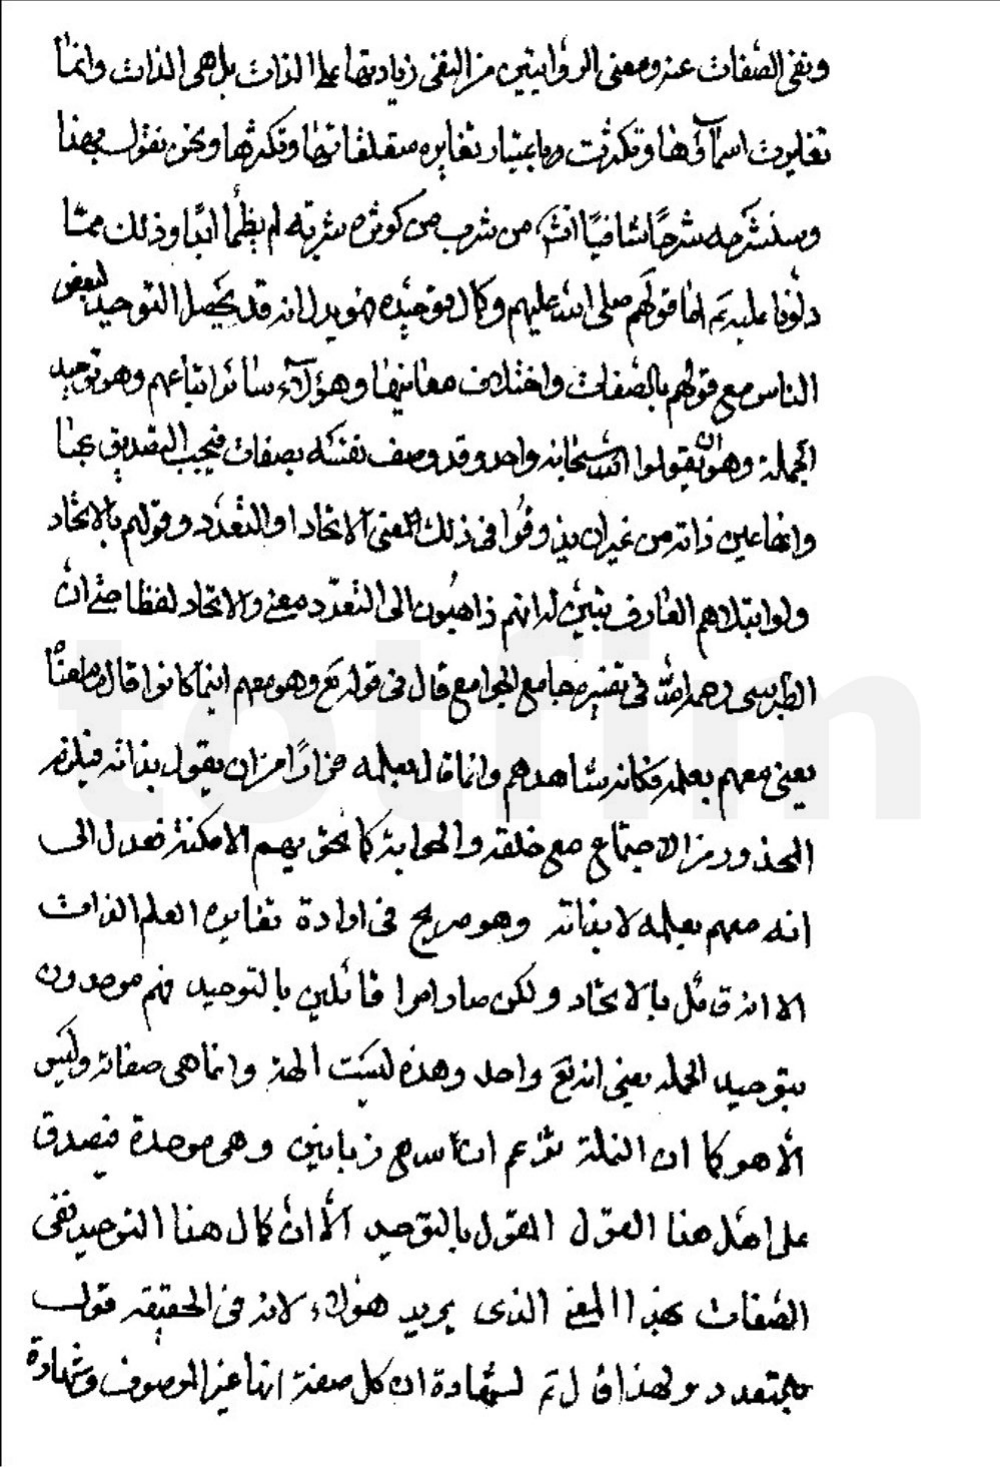 ونفى الصفات عنه ومعنى الروايتين من النفى زيادتها على الذات بل هى الذات وانما
تغايرت اسماؤها وتكثرت باعتبار تغاير متعلقاتها وتكثرها ونحن نقول بهذا
وسنشرحه شرحًا شافيًا انش من شرب من كوثره شربة لم يظمأ ابدًا وذلك ممّا
دلونا عليه ثم اما قولهم صلى الله عليهم وكمال توحيده فهو يدل انه قد يحصل التوحيد لبعض
الناس مع قولهم بالصفات واختلاف معانيها وهؤلآء سائر اتباعهم وهو توحيد
الجملة وهو ان يقولوا الله سبحانه واحد وقد وصف نفسه بصفات فيجب التصديق بها
وانها عين ذاته من غير ان يذوقوا فى ذلك المعنى الاتحاد او التعدّد وقولهم بالاتحاد
ولو ابتلاهم العارف يتبيّن له انهم ذاهبون الى التعدّد معنى والاتحاد لفظا حتى انّ
الطبرسى رحمه الله فى تفسيره جامع الجوامع قال فى قوله تع وهو معهم اينما كانوا قال ما معناه
يعنى معهم بعلمه فكانه يشاهدهم وانما قال بعلمه فرارًا من ان يقول بذاته فيلزمه
المحذور من الاجتماع مع خلقه والمحاية كما تحق بهم الامكنة فعدل الى
انه معهم بعلمه لا بذاته وهو صريح فى ارادة تغاير العلم الذات
الا انه قائل بالاتحاد ولكن صاروا قائلين بالتوحيد فهم موحدون
بتوحيد الجملة يعنى انه تع واحد وهذه ليست الهة وانما هى صفاته وليس
الّا هو كما ان النملة تزعم ان لله زبانين وهى موحدة فيصدق
على اهل هذا القول القول بالتوحيد الّا انّ كمال هذا التوحيد نفى
الصّفات بهذا المعنى الذى يريد هؤلاء لانه فى الحقيقه قول
بمتعدد ولهذا قال ثم لشهادة ان كل صفة انها غير الموصوف وشهادة